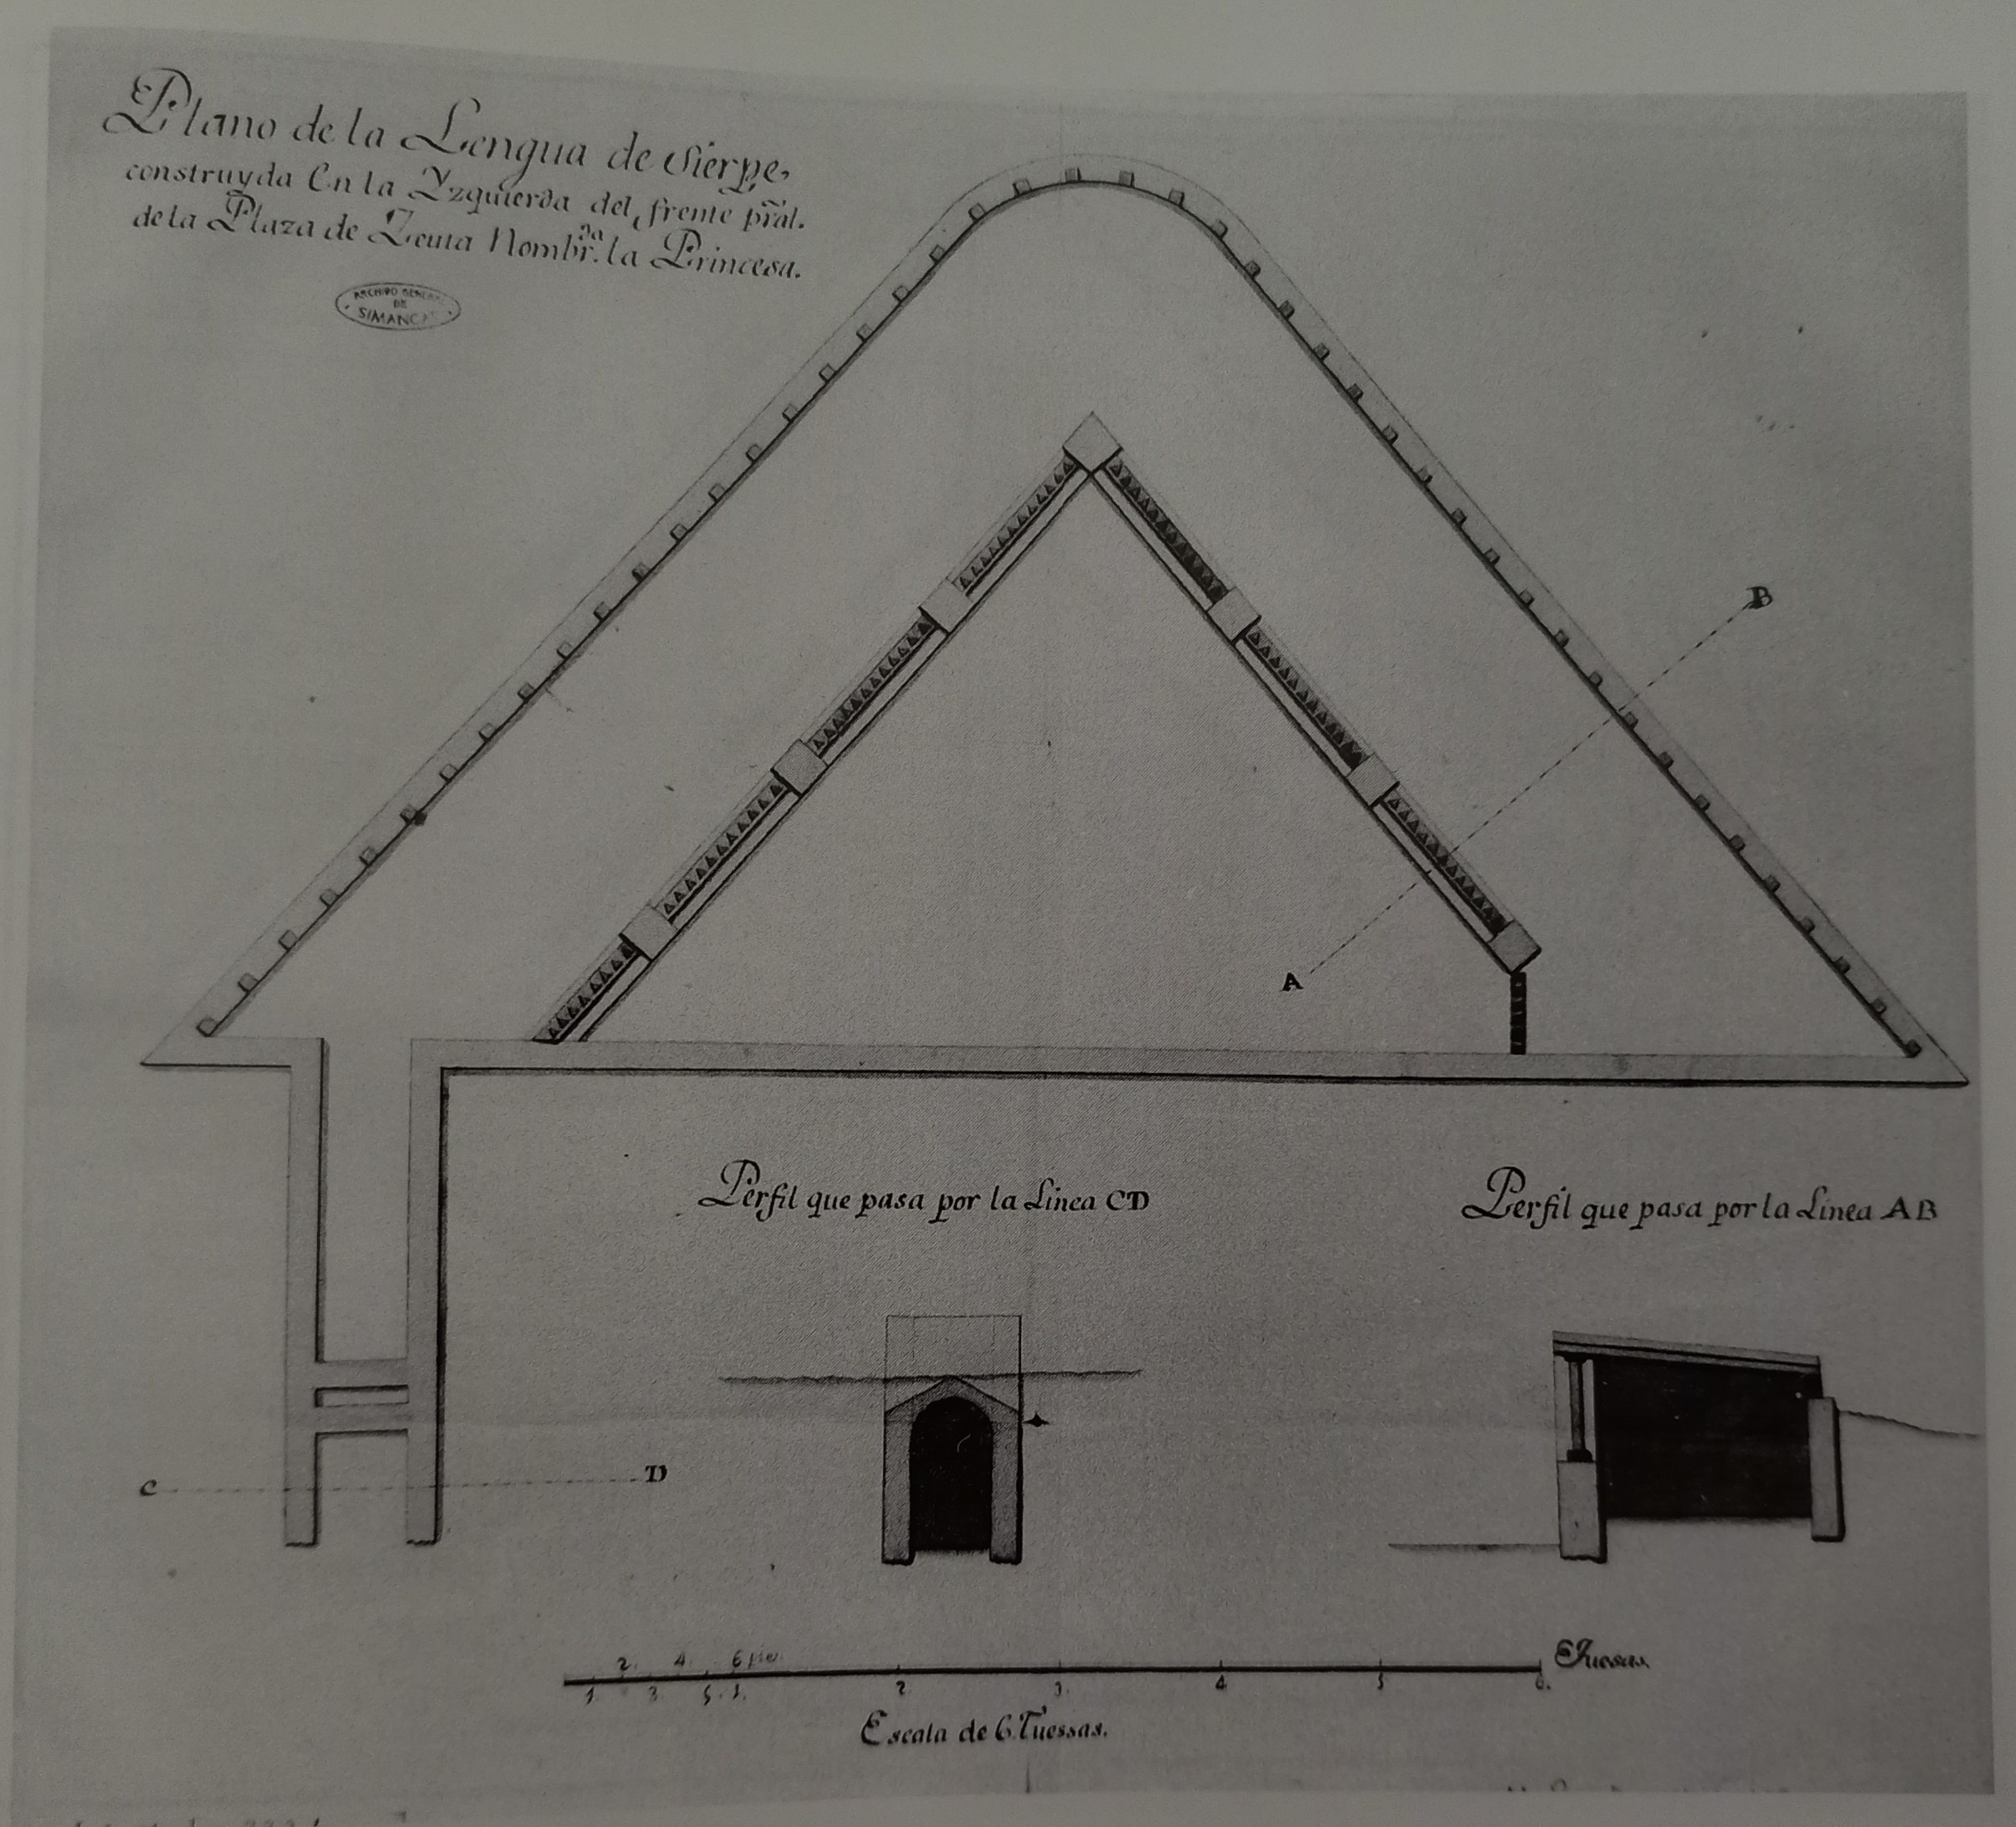 Plano de la Lengua de Sierpe,
construyda En la Yzquierda del frente prãl.
de la Plaza de Zeuta Nombr.da la Princesa.
ARCHIVO GENERAL
DE
SIMANCAS
B
A
Perfil que pasa por la Linea CD
Perfil que pasa por la Linea AB
C
D
2. 4. 6 pie.
1. 3. 5. 1. 2. 3. 4. 5 6.
6 Tuesas.
Escala de 6 Tuessas.